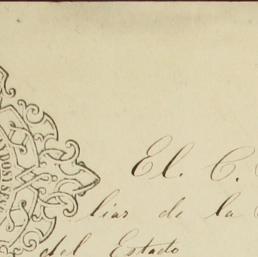 El. C.
lias de la
del Estado